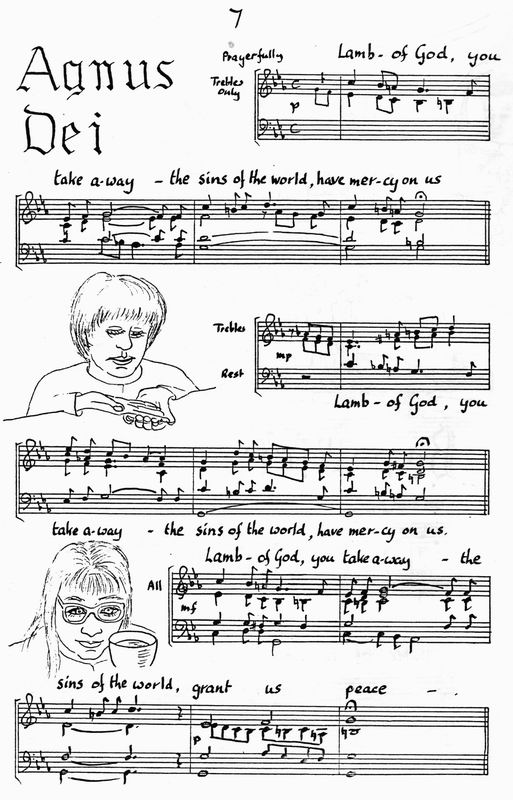 7
Agnus
Dei
Prayerfully
Trebles
Only
Lamb - of God, you
p
take a-way - the sins of the world, have mer-cy on us
Trebles
mp
Rest
Lamb - of God, you
take a-way - the sins of the world, have mer-cy on us.
Lamb - of God, you take a-way - the
All
mf
sins of the world, grant us peace - .
p